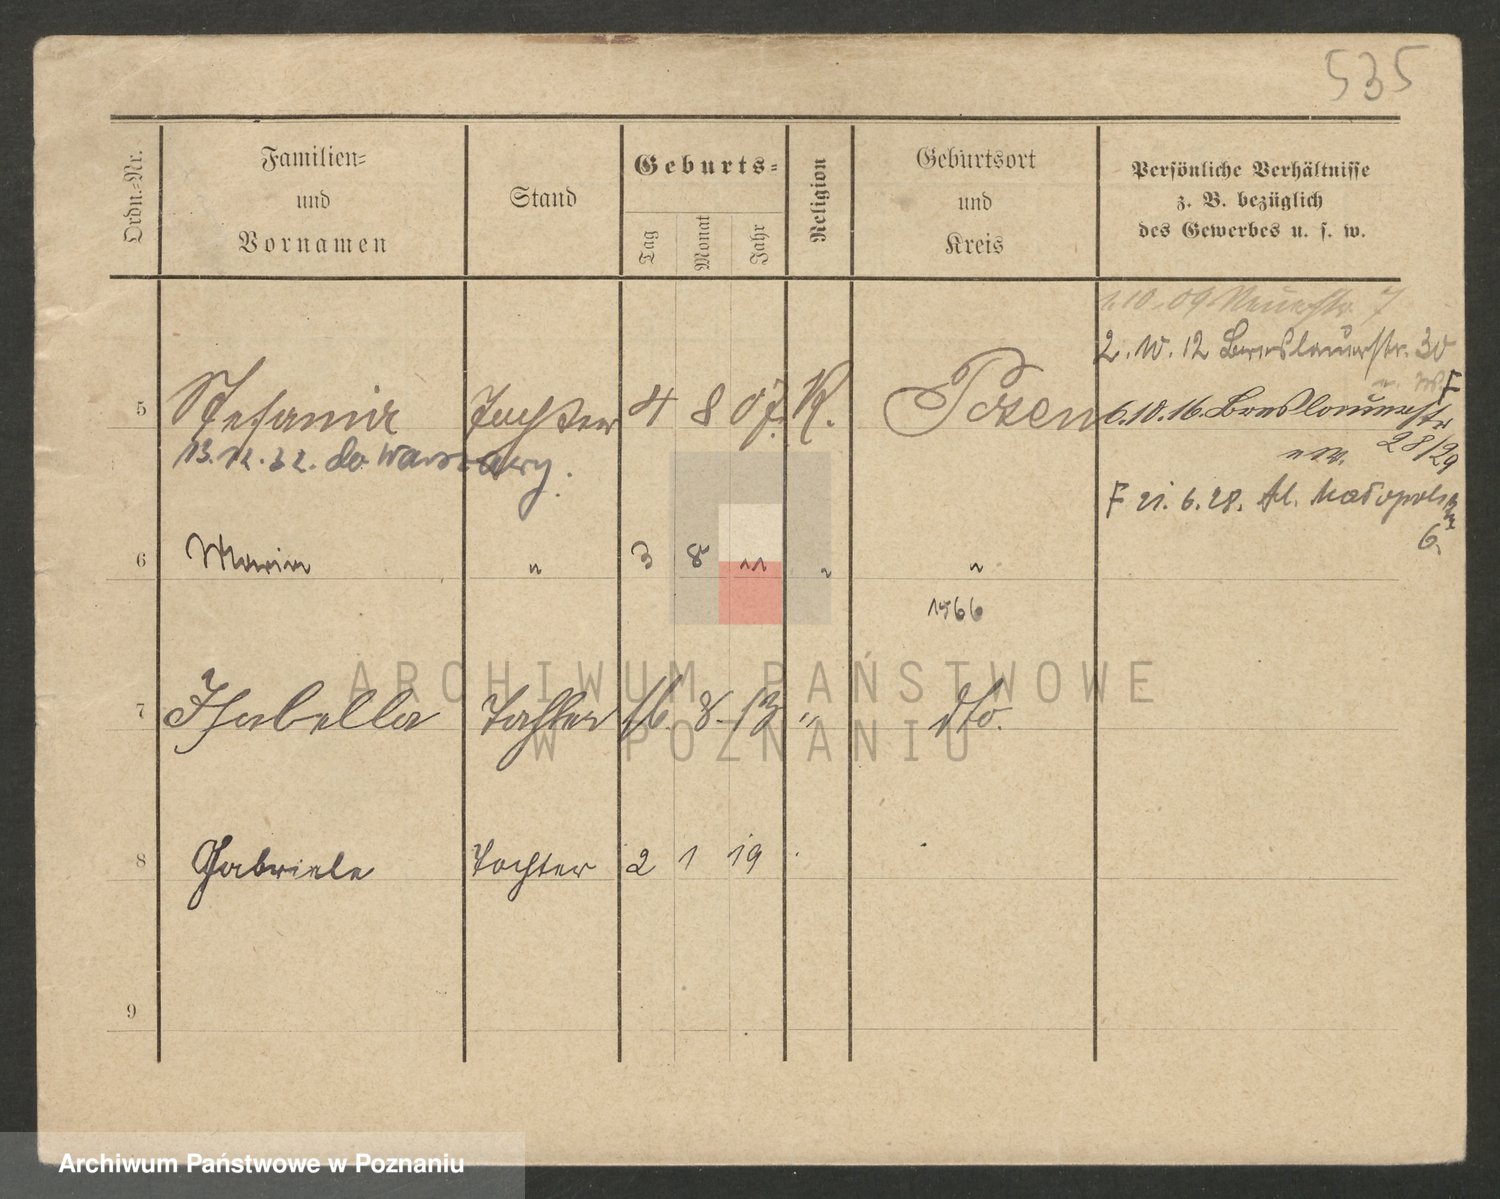 535
Ordn.-Nr.
Familien-
und
Vornamen
Stand
Geburts-
Tag
Monat
Jahr
Religion
Geburtsort
und
Kreis
Persönliche Verhältnisse
z. B. bezüglich
des Gewerbes u. s. w.
1.10.09. Neuestr. 7
2.10.12 Breslauerstr. 30
5 Stefania Tochter 4 8 07. K. Posen
6.10.16. Breslauerstr
28/29
13.12.32. do Warszawy.
F 21.6.28. Al. Małopolska
6.
6 Maria " 3 8 11 " "
1566
7 Isabella Tochter 16. 8. 13 " dto.
8 Gabriele Tochter 2 1 19
9
ARCHIWUM PAŃSTWOWE
W POZNANIU
Archiwum Państwowe w Poznaniu